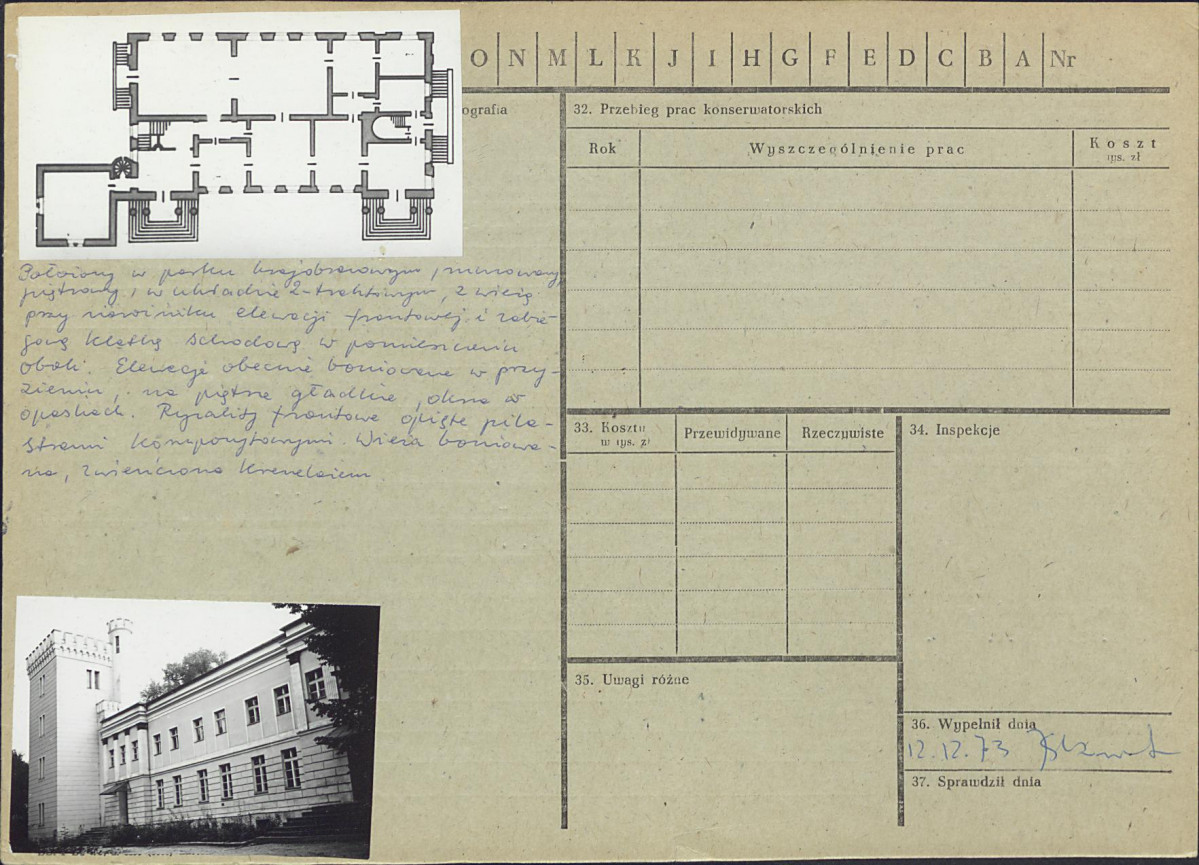 O N M L K J I H G F E D C B A Nr
ografia
32. Przebieg prac konserwatorskich
Rok
Wyszczególnienie prac
Koszt
tys. zł
Położony w parku krajobrazowym, murowany,
piętrowy, w układzie 2-traktowym, z wieżą
przy narożniku elewacji frontowej i zabie-
gową klatką schodową w pomieszczeniu
obok. Elewacje obecnie boniowane w przy-
ziemiu, na piętrze gładkie, okna w
opaskach. Ryzality frontowe opięte pila-
strami kompozytowymi. Wieża boniowa-
na, zwieńczona krenelażem
33. Koszty
w tys. zł
Przewidywane
Rzeczywiste
34. Inspekcje
35. Uwagi różne
36. Wypełnił dnia
12.12.73
37. Sprawdził dnia